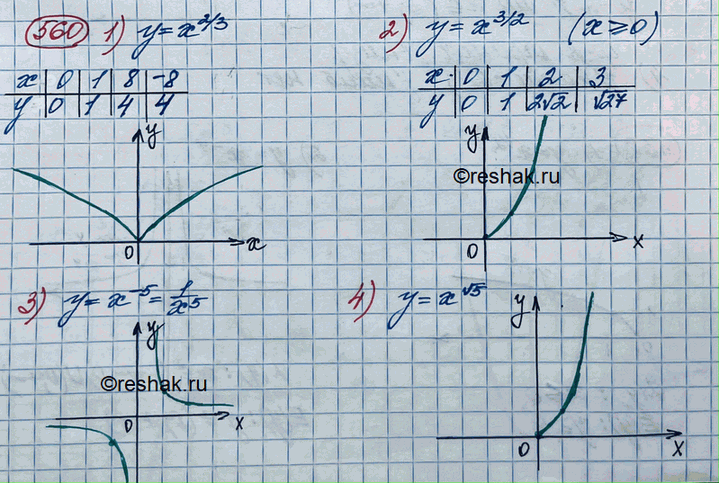 560 1) y = x^{2/3}
x | 0 | 1 | 8 | -8
y | 0 | 1 | 4 | 4
y
0
x
2) y = x^{3/2} (x ≥ 0)
x | 0 | 1 | 2 | 3
y | 0 | 1 | 2√2 | √27
y
©reshak.ru
0
x
3) y = x^{-5} = 1/x^5
y
©reshak.ru
0
x
4) y = x^{√5}
y
0
x